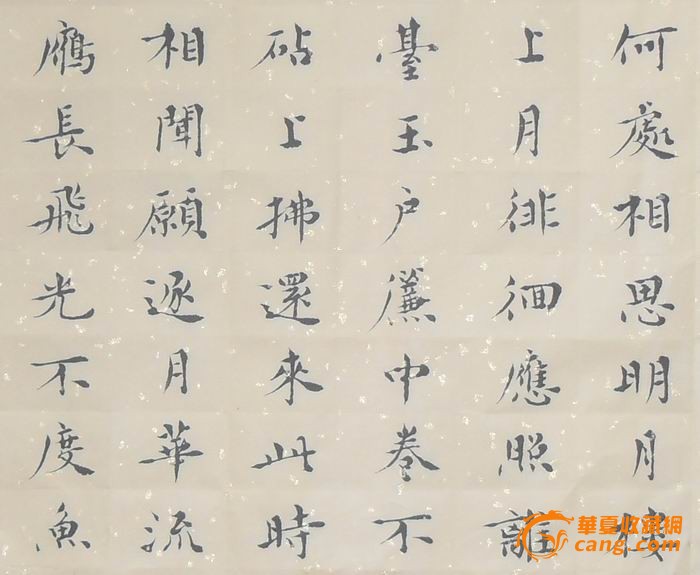 何處相思明月樓
上月徘徊應照離
臺玉户簾中卷不
砧上拂還來此時
相聞願逐月華流
鴈長飛光不度魚
華夏收藏網
cang.com